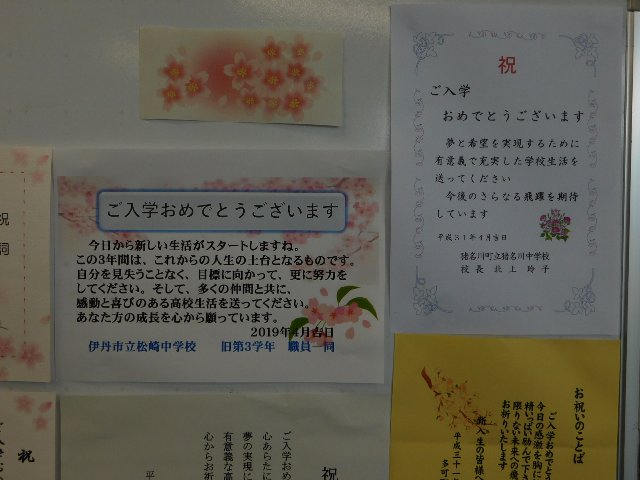 祝
ご入学
おめでとうございます
夢と希望を実現するために
有意義で充実した学校生活を
送ってください
今後のさらなる飛躍を期待
しています
平成31年4月吉日
猪名川町立猪名川中学校
校長 北上 玲子
ご入学おめでとうございます
今日から新しい生活がスタートしますね。
この3年間は、これからの人生の土台となるものです。
自分を見失うことなく、目標に向かって、更に努力を
してください。そして、多くの仲間と共に、
感動と喜びのある高校生活を送ってください。
あなた方の成長を心から願っています。
2019年4月吉日
伊丹市立松崎中学校 旧第3学年 職員一同
祝
詞
お祝いのことば
ご入学おめでと
今日の感激を胸に
精いっぱい励んで下さ
限りない未来への飛
お祈りいたします
新入生の皆様へ
平成三十一
多可
祝
ご入学おめ
心あらたに
夢の実現に
有意義な高
心からお祈
平
祝
ご入学お